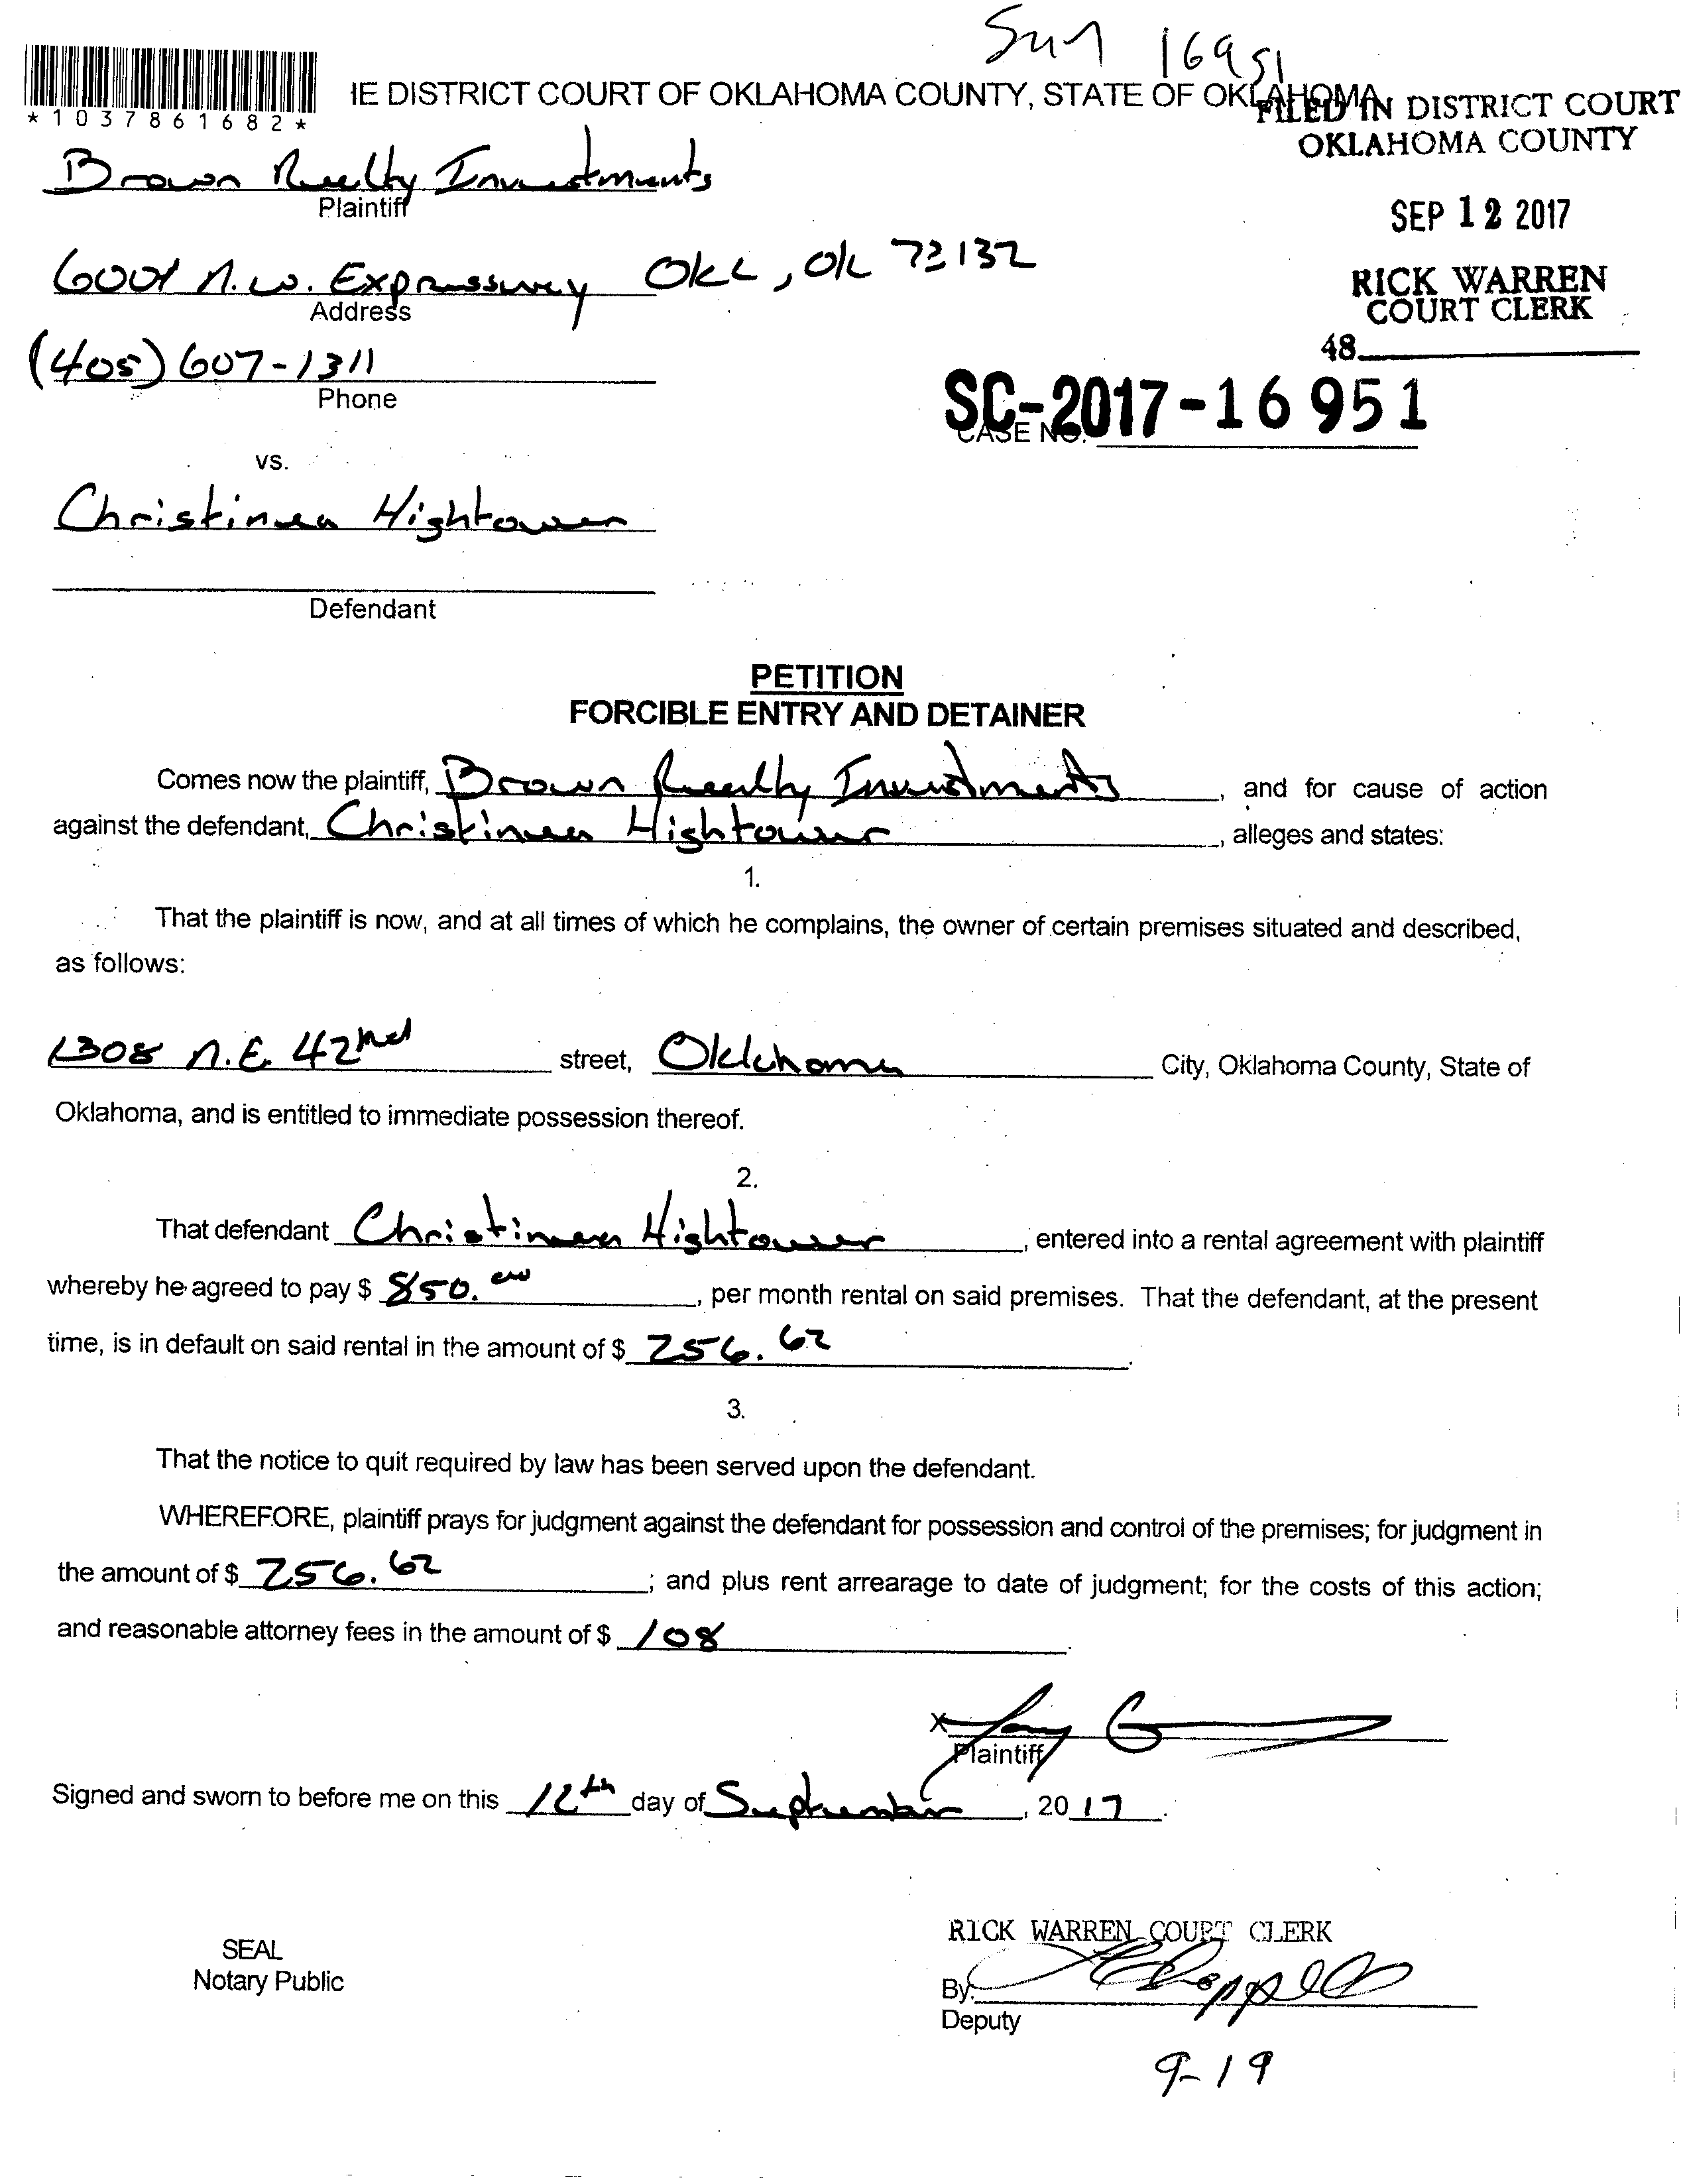 16951
IE DISTRICT COURT OF OKLAHOMA COUNTY, STATE OF OKLAHOMA
*1037861682*
FILED IN DISTRICT COURT
OKLAHOMA COUNTY
SEP 12 2017
RICK WARREN
COURT CLERK
48
Brown Realty Investments
Plaintiff
6001 N.W. Expressway OKC, OK 73132
Address
(405) 607-1311
Phone
SC-2017-16951
CASE NO.
vs.
Christinea Hightower
Defendant
PETITION
FORCIBLE ENTRY AND DETAINER
Comes now the plaintiff, Brown Realty Investments, and for cause of action
against the defendant, Christinea Hightower, alleges and states:
1.
That the plaintiff is now, and at all times of which he complains, the owner of certain premises situated and described,
as follows:
1308 N.E. 42nd street, Oklahoma City, Oklahoma County, State of
Oklahoma, and is entitled to immediate possession thereof.
2.
That defendant Christinea Hightower, entered into a rental agreement with plaintiff
whereby he agreed to pay $ 850.00, per month rental on said premises. That the defendant, at the present
time, is in default on said rental in the amount of $ 256.62.
3.
That the notice to quit required by law has been served upon the defendant.
WHEREFORE, plaintiff prays for judgment against the defendant for possession and control of the premises; for judgment in
the amount of $ 256.62; and plus rent arrearage to date of judgment; for the costs of this action;
and reasonable attorney fees in the amount of $ 108.
X
Plaintiff
Signed and sworn to before me on this 12th day of September, 2017.
RICK WARREN COURT CLERK
SEAL
Notary Public
By:
Deputy
9-19